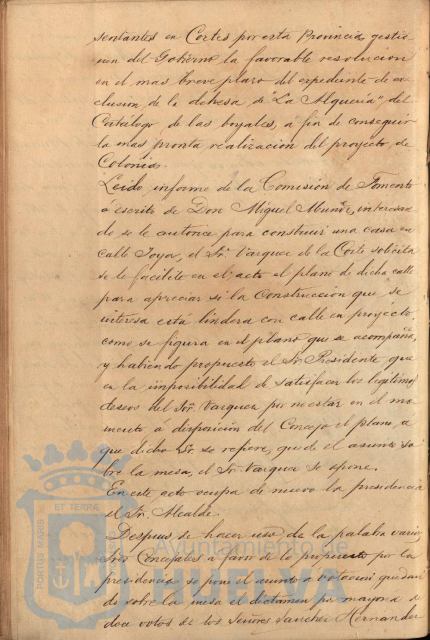 sentantes en Cortes por esta Provincia, gestio
nen del Gobierno la favorable resolucion
en el mas breve plazo del expediente de ex
clusion de la dehesa de "La Alqueria" del
Catálogo de las boyales, á fin de conseguir
la mas pronta realizacion del proyecto de
Colonia.
Leido informe de la Comisión de Fomento
á escrito de Don Miguel interesan
do se le autorice para construir una casa en
calle Joya, el Sr. Vazquez de la Corte solicita
se le facilite en el acto el plano de dicha calle
para apreciar si la Construccion que se
interesa está lindera con calle en proyecto
como se figura en el plano que se acompaña,
y habiendo propuesto el Sr. Presidente que
en la imposibilidad de satisfacer los legítimos
deseos del Sr. Vazquez por no estar en el mo
mento á disposicion del Concejo el plano á
que dicho Sr. se refiere, quede el asunto so
bre la mesa, el Sr. Vazquez se opone.
En este acto ocupa de nuevo la presidencia
el Sr. Alcalde.
Despues de hacer uso de la palabra varios
Sres Concejales á favor de lo propuesto por la
presidencia se pone el asunto á votacion quedan
do sobre la mesa el dictámen por mayoria de
doce votos de los Señores Sanchez Hernandez
PORTUS MARIS ET TERRAE
Ayuntamiento de
HUELVA